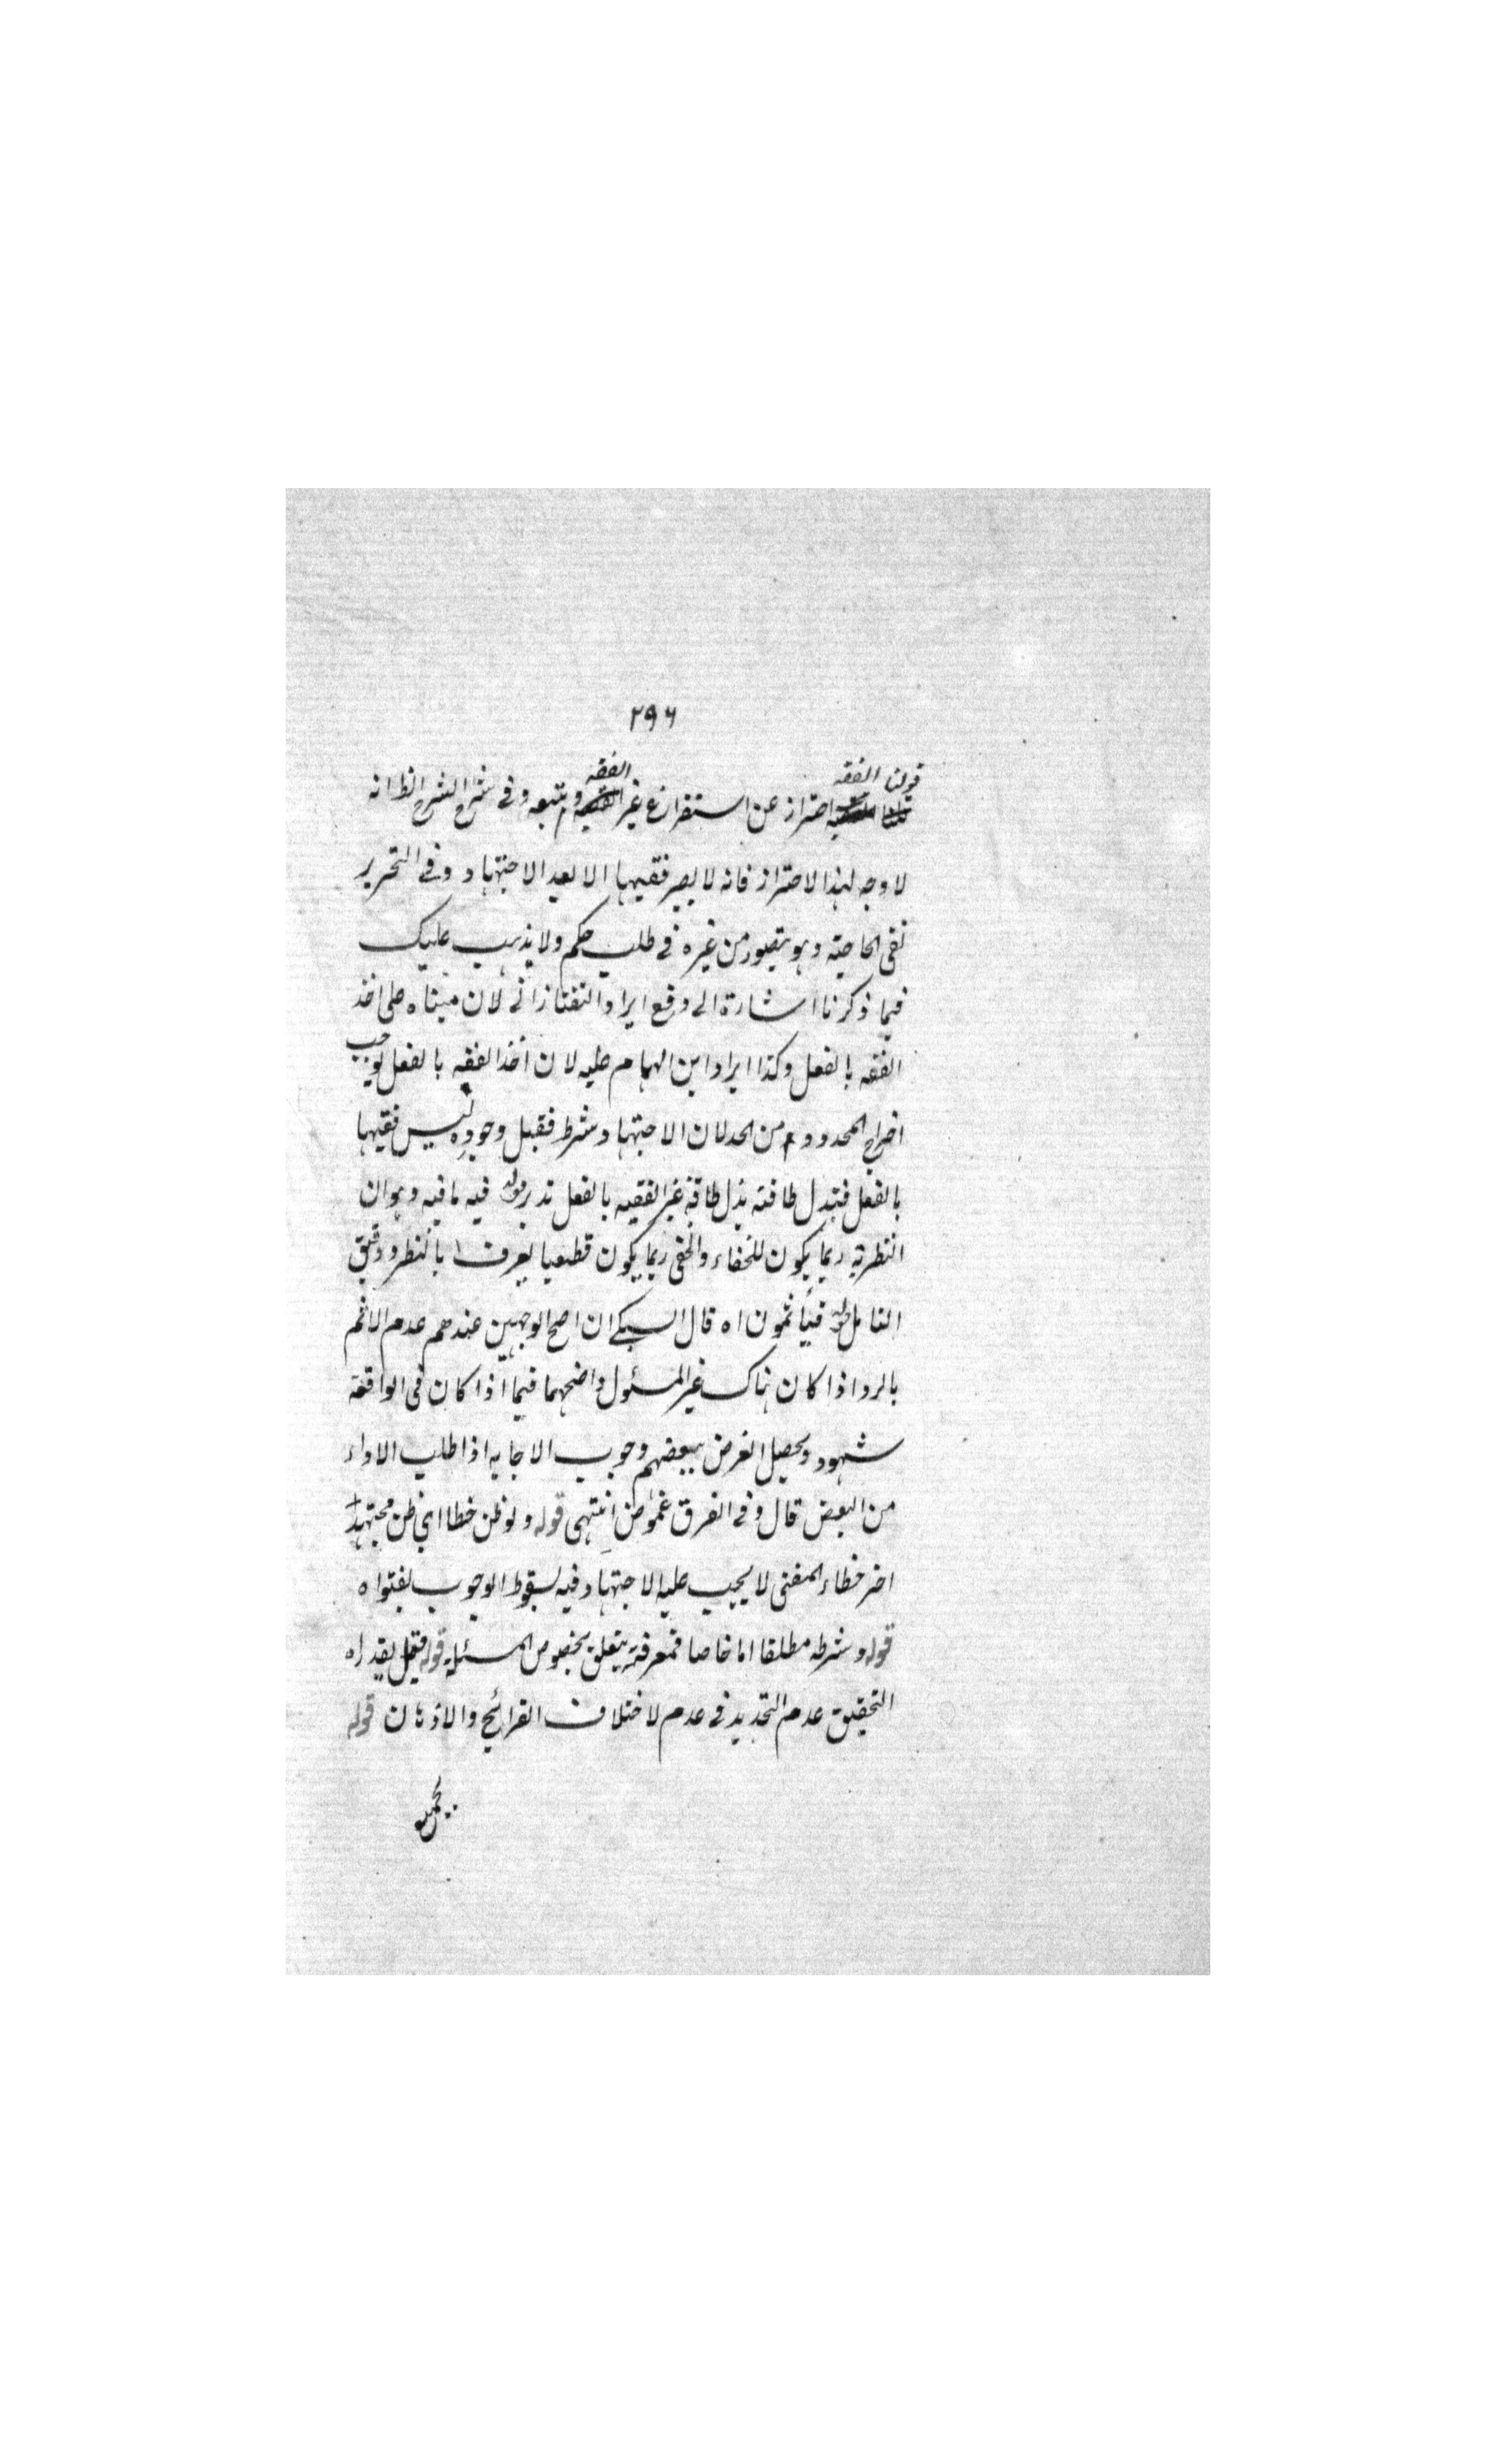 ٢٩٦
قولنا الفقيه احتراز عن استفراغ غير الفقيه وتبعه وفى شرح الشرح الظ انه
لا وجه لهذا الاحتراز فانه لا يصير فقيها الا بعد الاجتهاد وفى التحرير
نفى الحاجته وهو يتصور من غيره فى طلب حكم ولا يذهب عليك
فيما ذكرنا اشارة الى دفع ايراد التفتازانى لان مبناه على اخذ
الفقه بالفعل وكذا ايراد ابن الهمام عليه لان اخذ الفقه بالفعل يوجب
اخراج المحدود من الحد لان الاجتهاد شرط فقبل وجوده ليس فقيها
بالفعل فبذل طاقته بذل طاقة غير الفقيه بالفعل تدبر قوله فيه ما فيه وهو ان
النظرية ربما يكون للخفاء والخفى ربما يكون قطعيا يعرف بالنظر ودقيق
التامل قوله فيأثمون اه قال السبكى ان اصح الوجهين عندهم عدم الاثم
بالرد اذا كان هناك غير المسئول واصحهما فيما اذا كان فى الواقعة
شهود ويحصل الغرض ببعضهم وجوب الاجابه اذا طلب الاداء
من البعض قال وفى الفرق غموض انتهى قوله ولو ظن خطا اى ظن مجتهدا
اخر خطاء المفتى لا يجب عليه الاجتهاد وفيه لسقوط الوجوب بفتواه
قوله وشرطه مطلقا اما خاصا فمعرفة يتعلق بخصوص المسئلة قوله فقيل بقدر اه
التحقيق عدم التحديد فى عدم لاختلاف القرائح والاذهان قوله